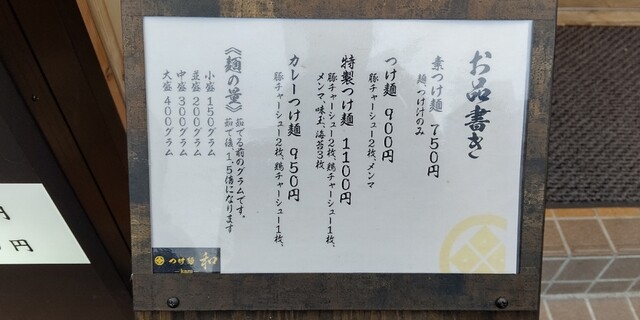 お品書き
素つけ麺 750円
麺つけ汁のみ
つけ麺 900円
豚チャーシュー2枚、メンマ
特製つけ麺 1100円
豚チャーシュー2枚、鶏チャーシュー1枚、
メンマ、味玉、海苔3枚
カレーつけ麺 950円
豚チャーシュー2枚、鶏チャーシュー1枚、
《麺の量》
茹でる前のグラムです。
茹で後、1.5倍になります
小盛 150グラム
並盛 200グラム
中盛 300グラム
大盛 400グラム
つけ麺 和
円
円